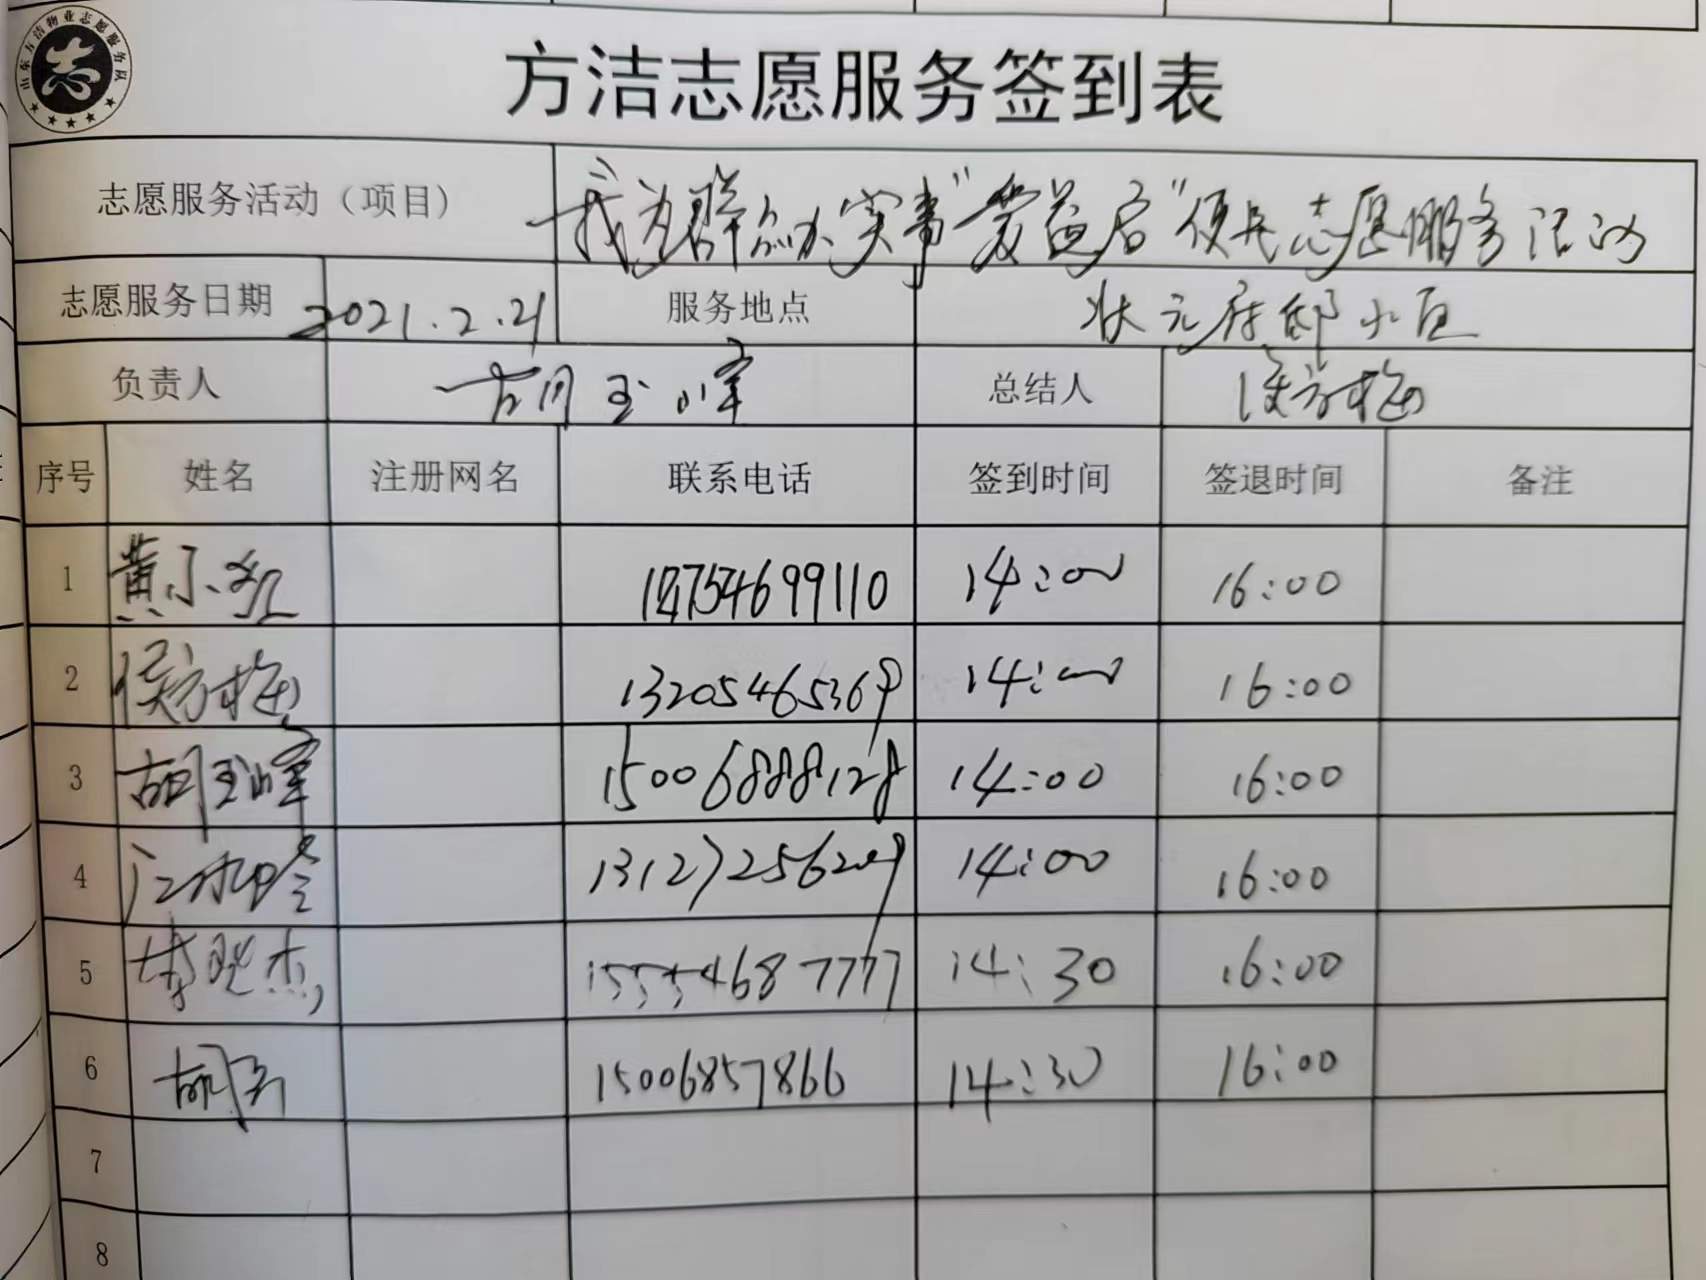 山东方洁物业志愿服务队
志
方洁志愿服务签到表
志愿服务活动（项目） 我为群众办实事"爱益启"便民志愿服务活动
志愿服务日期 2021.2.21 服务地点 状元府邸小区
负责人 胡玉峰 总结人 侯方梅
序号 姓名 注册网名 联系电话 签到时间 签退时间 备注
1 黄小红 14:00 16:00
2 侯方梅 13205465369 14:00 16:00
3 胡玉峰 15006888128 14:00 16:00
4 13127256209 14:00 16:00
5 15554687777 14:30 16:00
6 15006857866 14:30 16:00
7
8